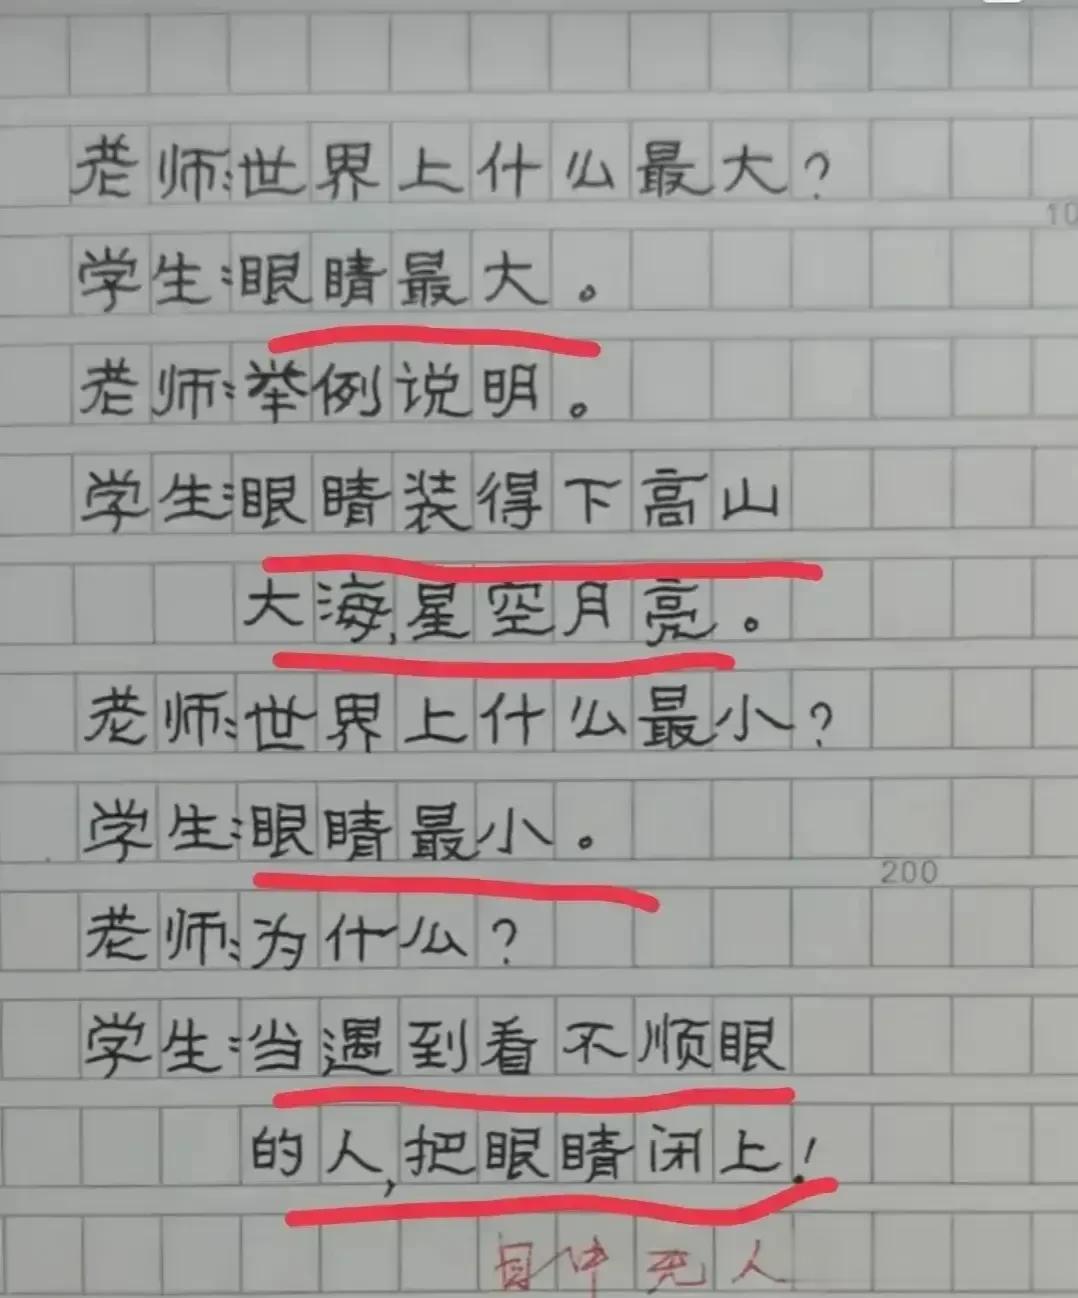 老师:世界上什么最大?
10
学生:眼睛最大。
老师:举例说明。
学生:眼睛装得下高山
大海,星空月亮。
老师:世界上什么最小?
学生:眼睛最小。
200
老师:为什么?
学生:当遇到看不顺眼
的人,把眼睛闭上!
目中无人